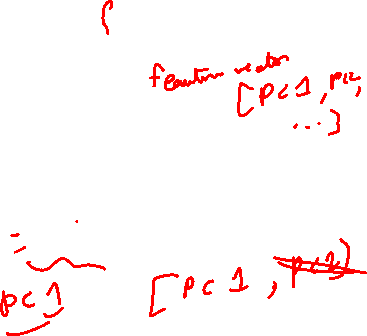 feature vector
[pc1, pc2,
...]
pc1 [pc1, pc2]